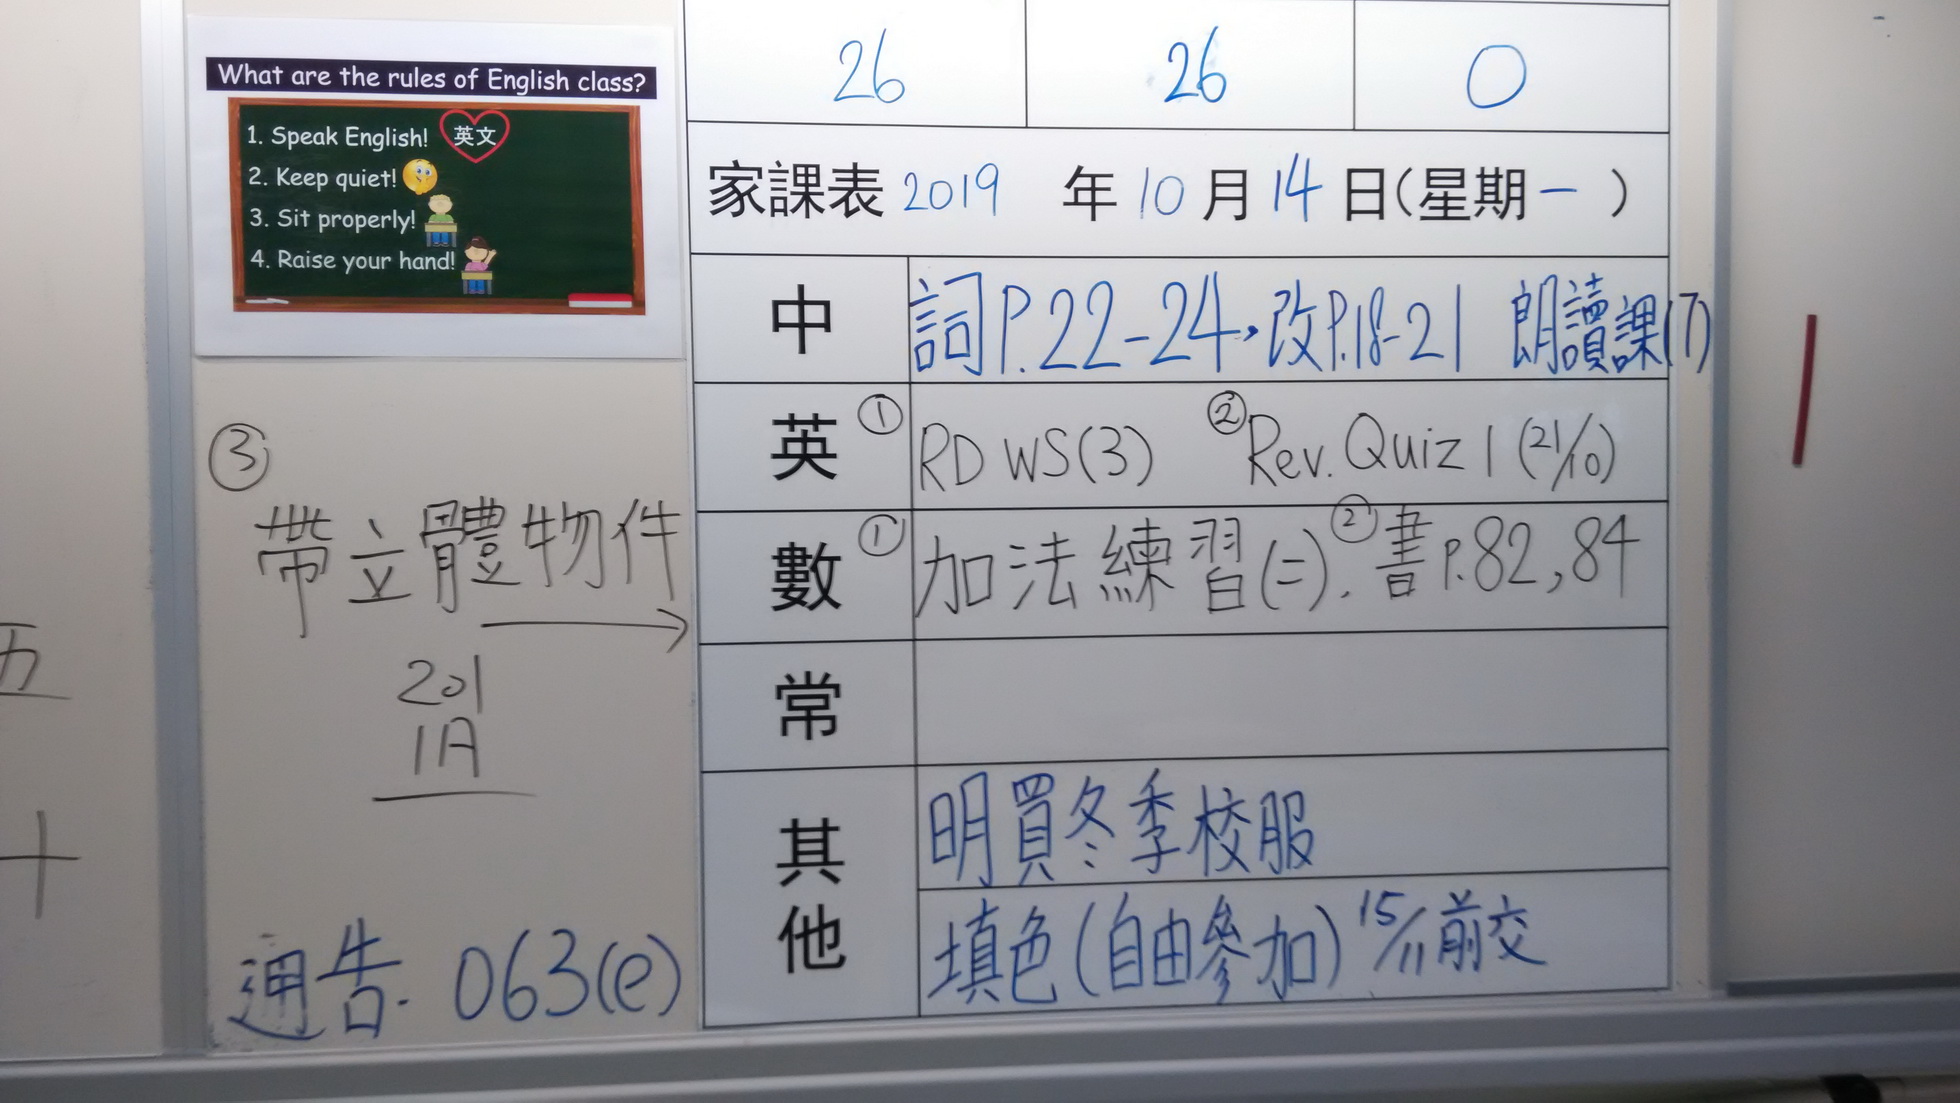 What are the rules of English class?
1. Speak English! 英文
2. Keep quiet!
3. Sit properly!
4. Raise your hand!
26 26 0
家課表 2019 年 10 月 14 日(星期一)
中 詞P.22-24,改P.18-21 朗讀課(7)
英 ① RD WS(3) ② Rev. Quiz 1 (21/10)
數 ① 加法練習(二). ② 書P.82,84
③
帶立體物件
→
201
1A
常
其他
明買冬季校服
填色(自由參加) 15/11前交
通告. 063(e)
五
十